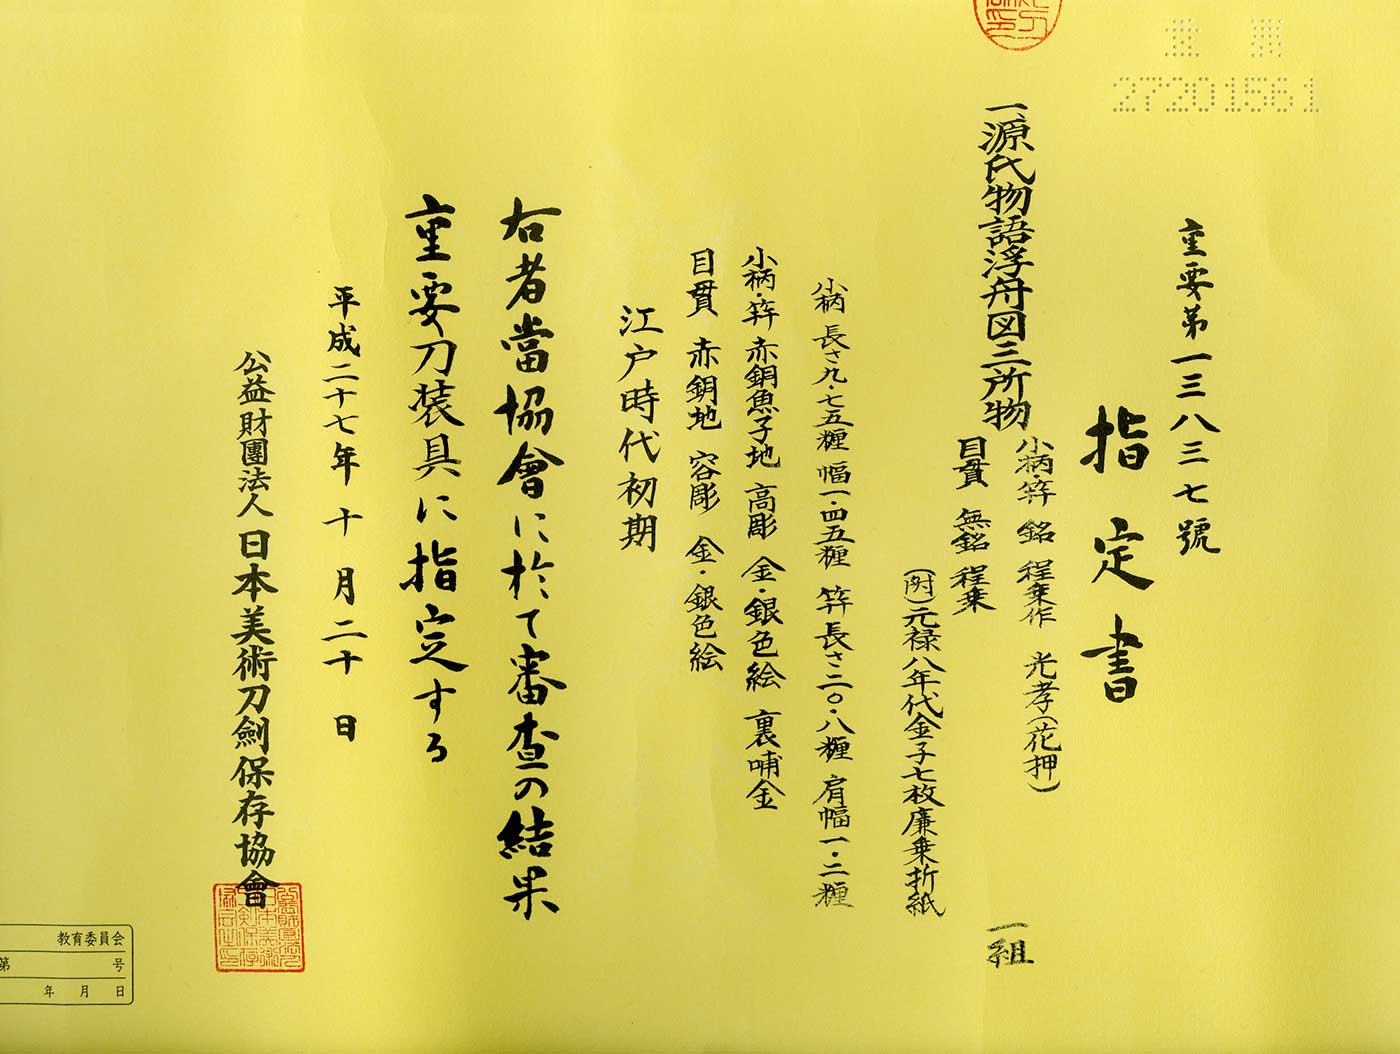 重要第一三八三七號
指定書
一、源氏物語浮舟図三所物 一組
小柄・笄 銘 程乗作 光孝(花押)
目貫 無銘 程乗
(附)元禄八年代金子七枚廉乗折紙
小柄 長さ九・七五糎 幅一・四五糎 笄 長さ二〇・八糎 肩幅一・二糎
小柄・笄 赤銅魚子地 高彫 金・銀色絵 裏哺金
目貫 赤銅地 容彫 金・銀色絵
江戸時代初期
右者當協會に於て審査の結果
重要刀装具に指定する
平成二十七年十月二十日
公益財團法人日本美術刀劍保存協會
27201561
教育委員会
第 号
年 月 日